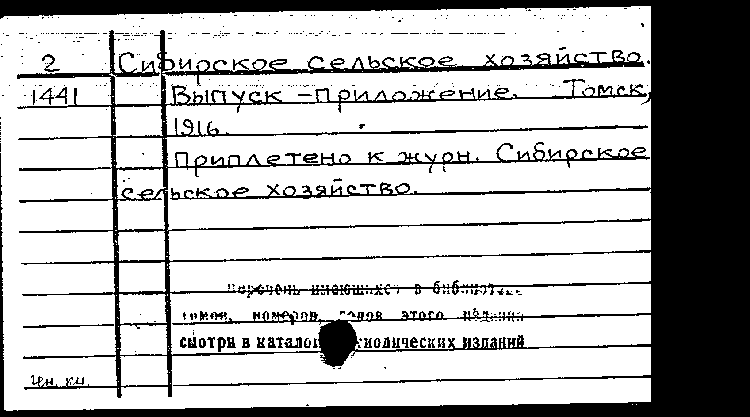 2 Сибирское сельское хозяйство.
1441 Выпуск – приложение. Томск,
1916.
Приплетено к журн. Сибирское
сельское хозяйство.
Перечень имеющихся в библиотеке
томов, номеров, годов этого издания
смотри в каталог иодических изданий
Ген. ки.